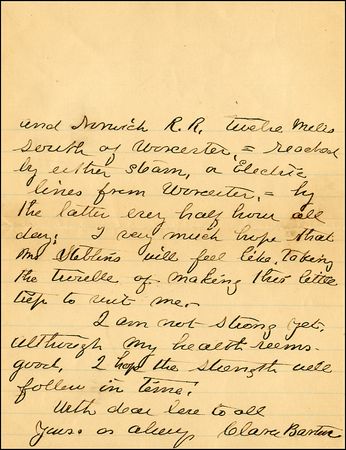 and Norwich R.R. twelve miles
south of Worcester, = reached
by either steam, or Electric
lines from Worcester, = by
the latter every half hour all
day. I very much hope that
Mr Stebbins will feel like taking
the trouble of making this little
trip to visit me.
I am not strong yet,
although my health seems
good, I hope the strength will
follow in time.
With dear love to all
Yours as always Clara Barton